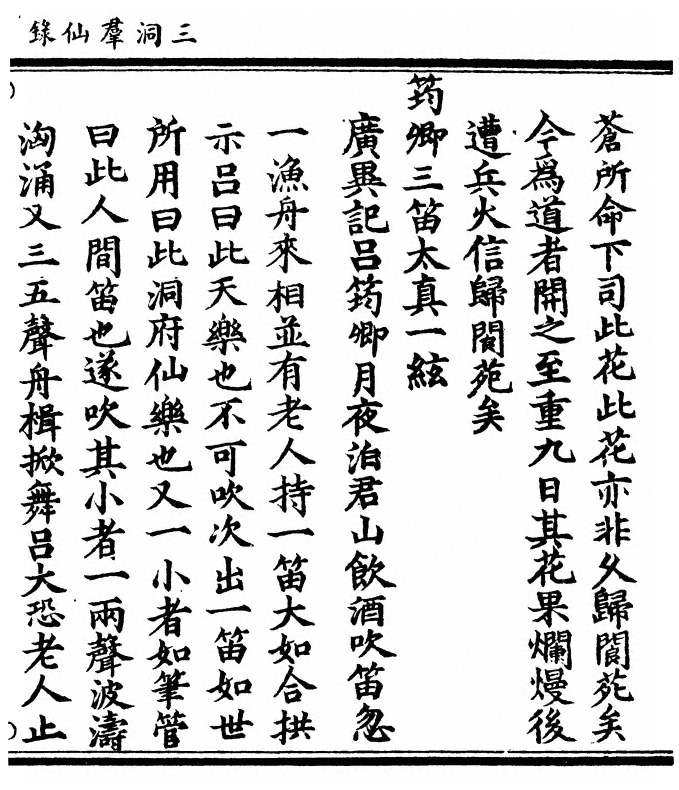 三洞羣仙錄
蒼所命下司此花此花亦非久歸閬苑矣
今爲道者開之至重九日其花果爛熳後
遭兵火信歸閬苑矣
筠卿三笛太真一絃
廣異記吕筠卿月夜泊君山飲酒吹笛忽
一漁舟來相並有老人持一笛大如合拱
示吕曰此天樂也不可吹次出一笛如世
所用曰此洞府仙樂也又一小者如筆管
曰此人間笛也遂吹其小者一兩聲波濤
洶涌又三五聲舟楫掀舞吕大恐老人止